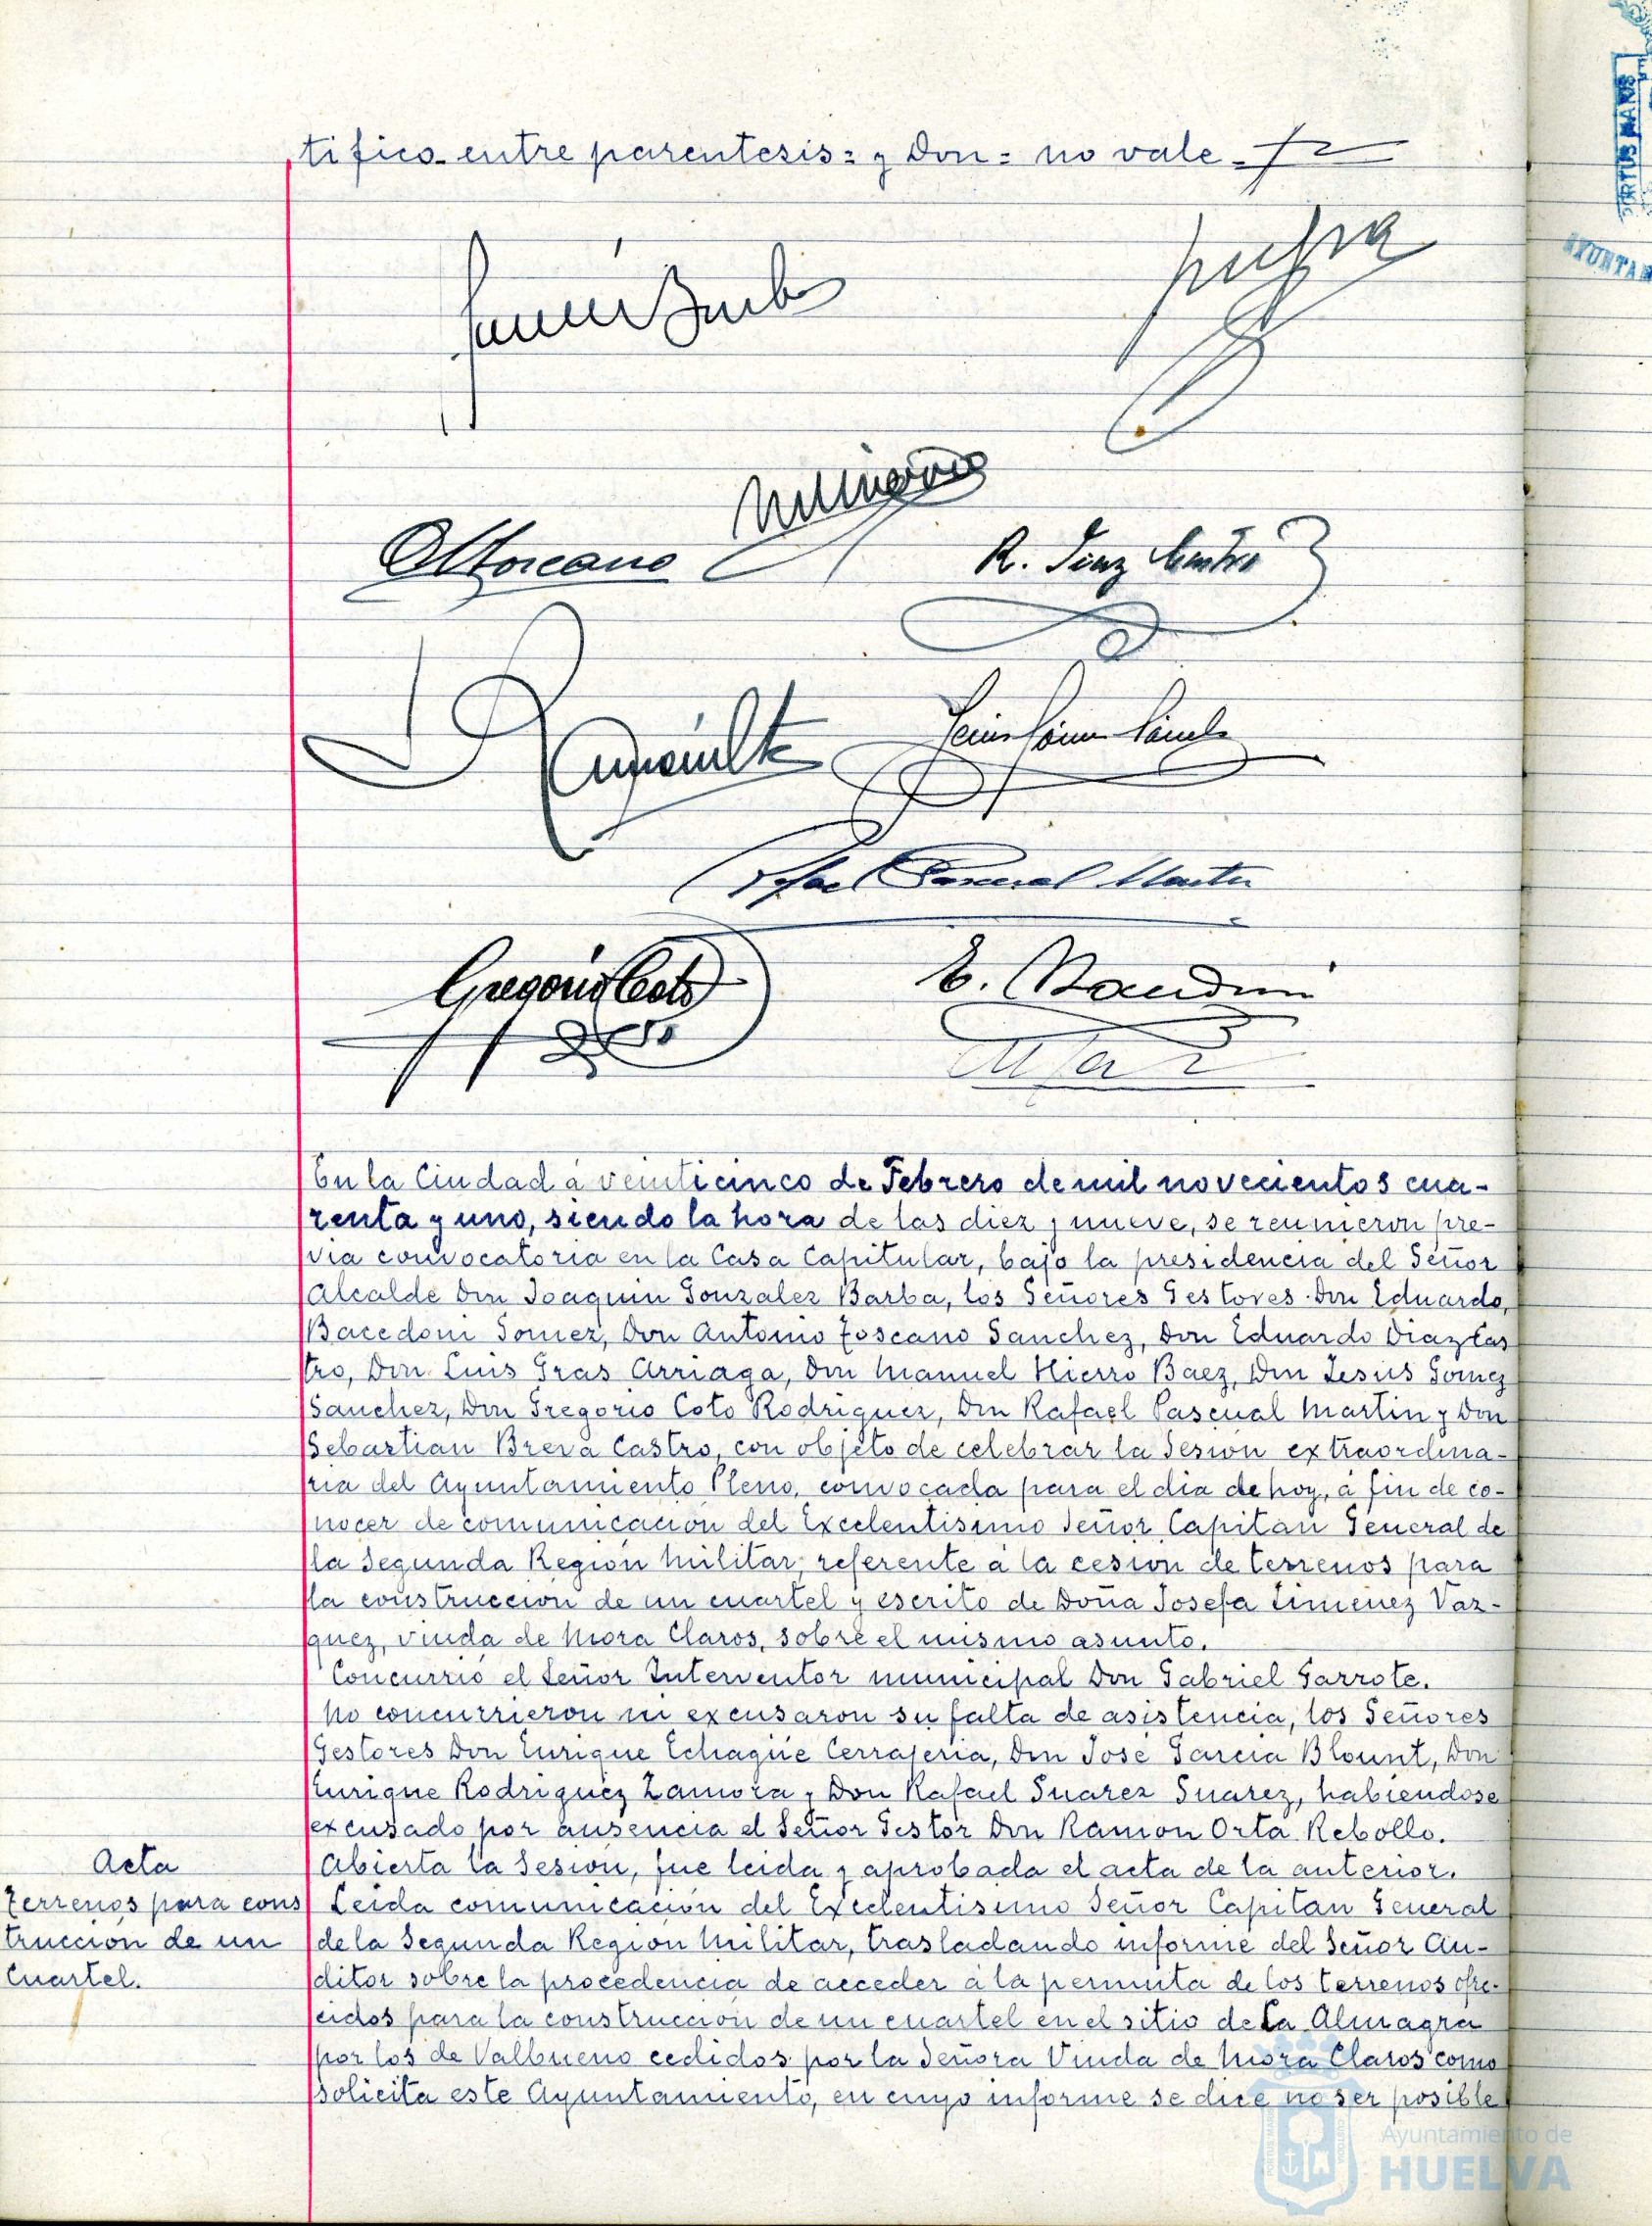 tifico entre parentesis = y Don = no vale =
Toscano
R. Diaz Castro
Jesus Gomez Sanchez
Rafael Pascual Martin
Gregorio Coto
En la Ciudad á veinticinco de Febrero de mil novecientos cua-
renta y uno, siendo la hora de las diez y nueve, se reunieron pre-
via convocatoria en la Casa Capitular, bajo la presidencia del Señor
Alcalde Don Joaquin Gonzalez Barba, los Señores Gestores Don Eduardo
Bacedoni Gomez, Don Antonio Toscano Sanchez, Don Eduardo Diaz Cas
tro, Don Luis Gras Arriaga, Don Manuel Hierro Baez, Don Jesus Gomez
Sanchez, Don Gregorio Coto Rodriguez, Don Rafael Pascual Martin y Don
Sebastian Breva Castro, con objeto de celebrar la Sesión extraordina-
ria del Ayuntamiento Pleno, convocada para el dia de hoy, á fin de co-
nocer de comunicación del Excelentisimo Señor Capitán General de
la Segunda Región Militar, referente á la cesión de terrenos para
la construcción de un cuartel y escrito de Doña Josefa Jimenez Vaz-
quez, viuda de Mora Claros, sobre el mismo asunto.
Concurrió el Señor Interventor municipal Don Gabriel Garrote.
No concurrieron ni excusaron su falta de asistencia, los Señores
Gestores Don Enrique Echagüe Cerrajeria, Don José Garcia Blount, Don
Enrique Rodriguez Zamora y Don Rafael Suarez Suarez, habiendose
excusado por ausencia el Señor Gestor Don Ramon Orta Rebollo.
Acta
Abierta la Sesión, fue leida y aprobada el acta de la anterior.
Terrenos para cons
trucción de un
Cuartel.
Leida comunicación del Excelentisimo Señor Capitan General
de la Segunda Region Militar, trasladando informe del Señor Au-
ditor sobre la procedencia de acceder á la permuta de los terrenos ofre-
cidos para la construcción de un cuartel en el sitio de La Almagra
por los de Valbueno cedidos por la Señora Viuda de Mora Claros como
solicita este Ayuntamiento, en cuyo informe se dice no ser posible
Ayuntamiento de
HUELVA